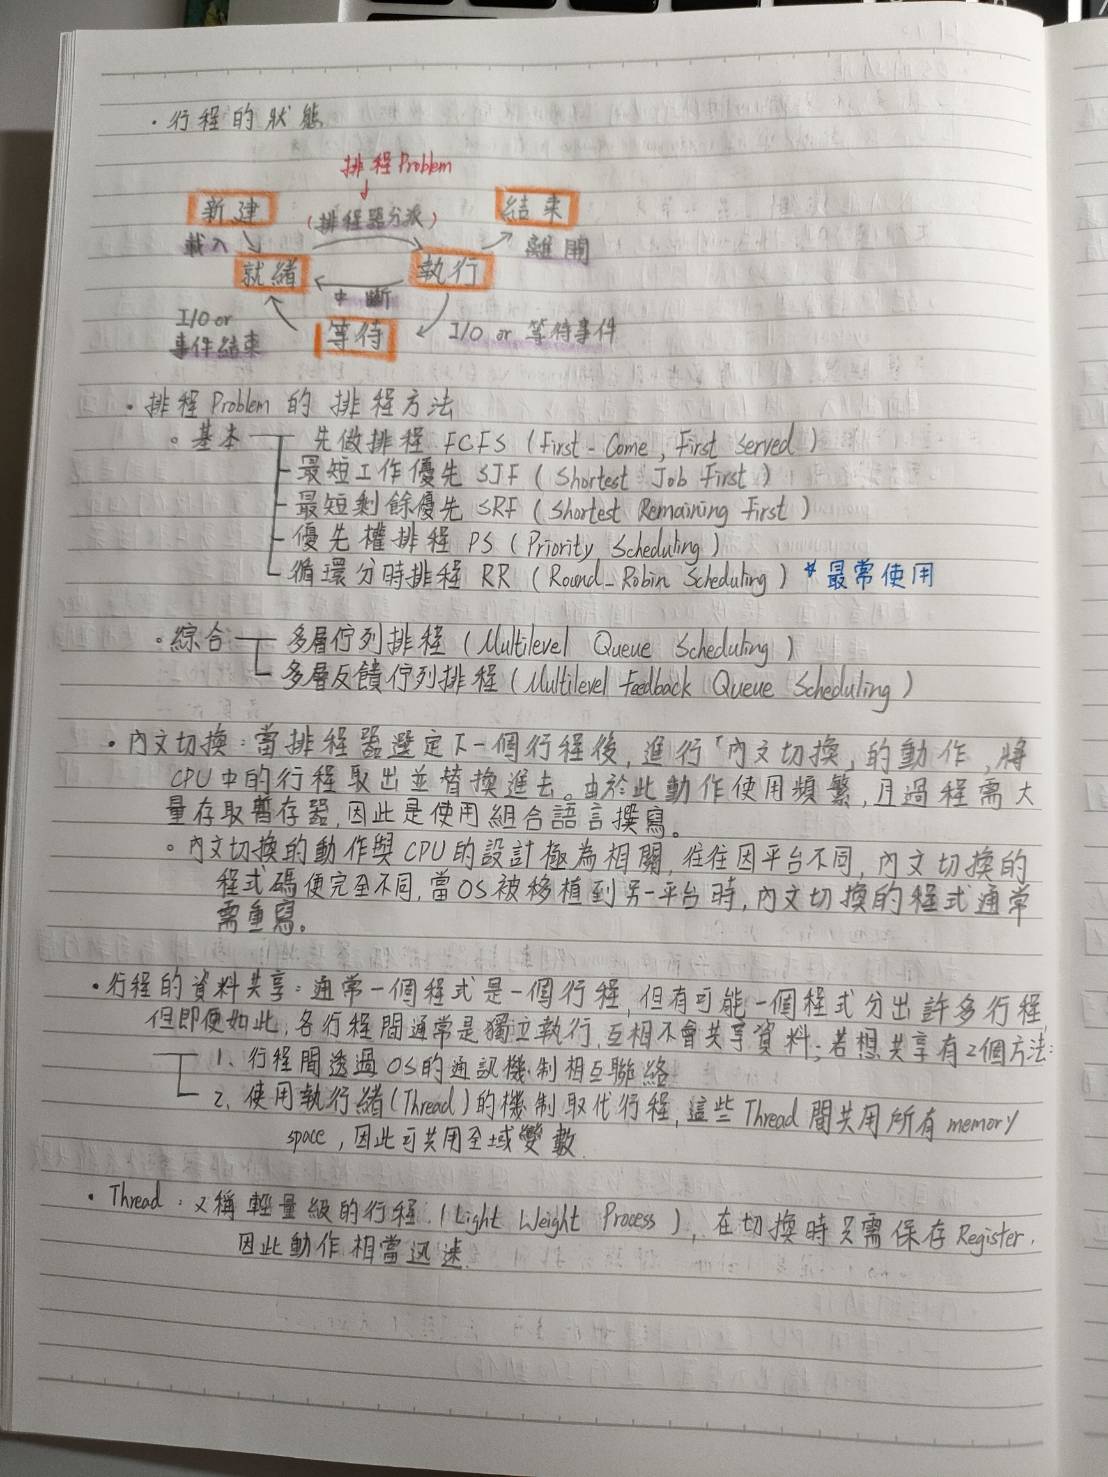 ・行程的狀態
排程Problem
新建
(排程器分派)
結束
載入
離開
就緒
執行
中斷
I/O or
事件結束
等待
I/O or 等待事件
・排程Problem 的 排程方法
。基本 先做排程 FCFS (First-Come, First Served)
最短工作優先 SJF (Shortest Job First)
最短剩餘優先 SRF (Shortest Remaining First)
優先權排程 PS (Priority Scheduling)
循環分時排程 RR (Round-Robin Scheduling) *最常使用
。綜合 多層佇列排程 (Multilevel Queue Scheduling)
多層反饋佇列排程 (Multilevel Feedback Queue Scheduling)
・內文切換：當排程器選定下一個行程後，進行「內文切換」的動作，將
CPU中的行程取出並替換進去。由於此動作使用頻繁，且過程需大
量存取暫存器，因此是使用組合語言撰寫。
。內文切換的動作與CPU的設計極為相關，往往因平台不同，內文切換的
程式碼便完全不同，當OS被移植到另一平台時，內文切換的程式通常
需重寫。
・行程的資料共享：通常一個程式是一個行程，但有可能一個程式分出許多行程
但即便如此，各行程間通常是獨立執行，互相不會共享資料；若想共享有2個方法：
1、行程間透過OS的通訊機制相互聯絡
2、使用執行緒(Thread)的機制取代行程，這些Thread間共用所有memory
space，因此可共用全域變數.
・Thread：又稱輕量級的行程.(Light Weight Process)，在切換時只需保存Register.
因此動作相當迅速.